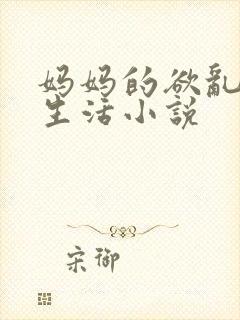 妈妈的欲乱
生活小说
宋御